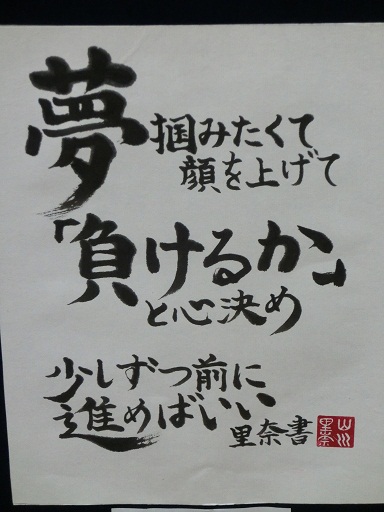 夢掴みたくて
顔を上げて
「負けるか」
と心決め
少しずつ前に
進めばいい
里奈書
山川
里奈